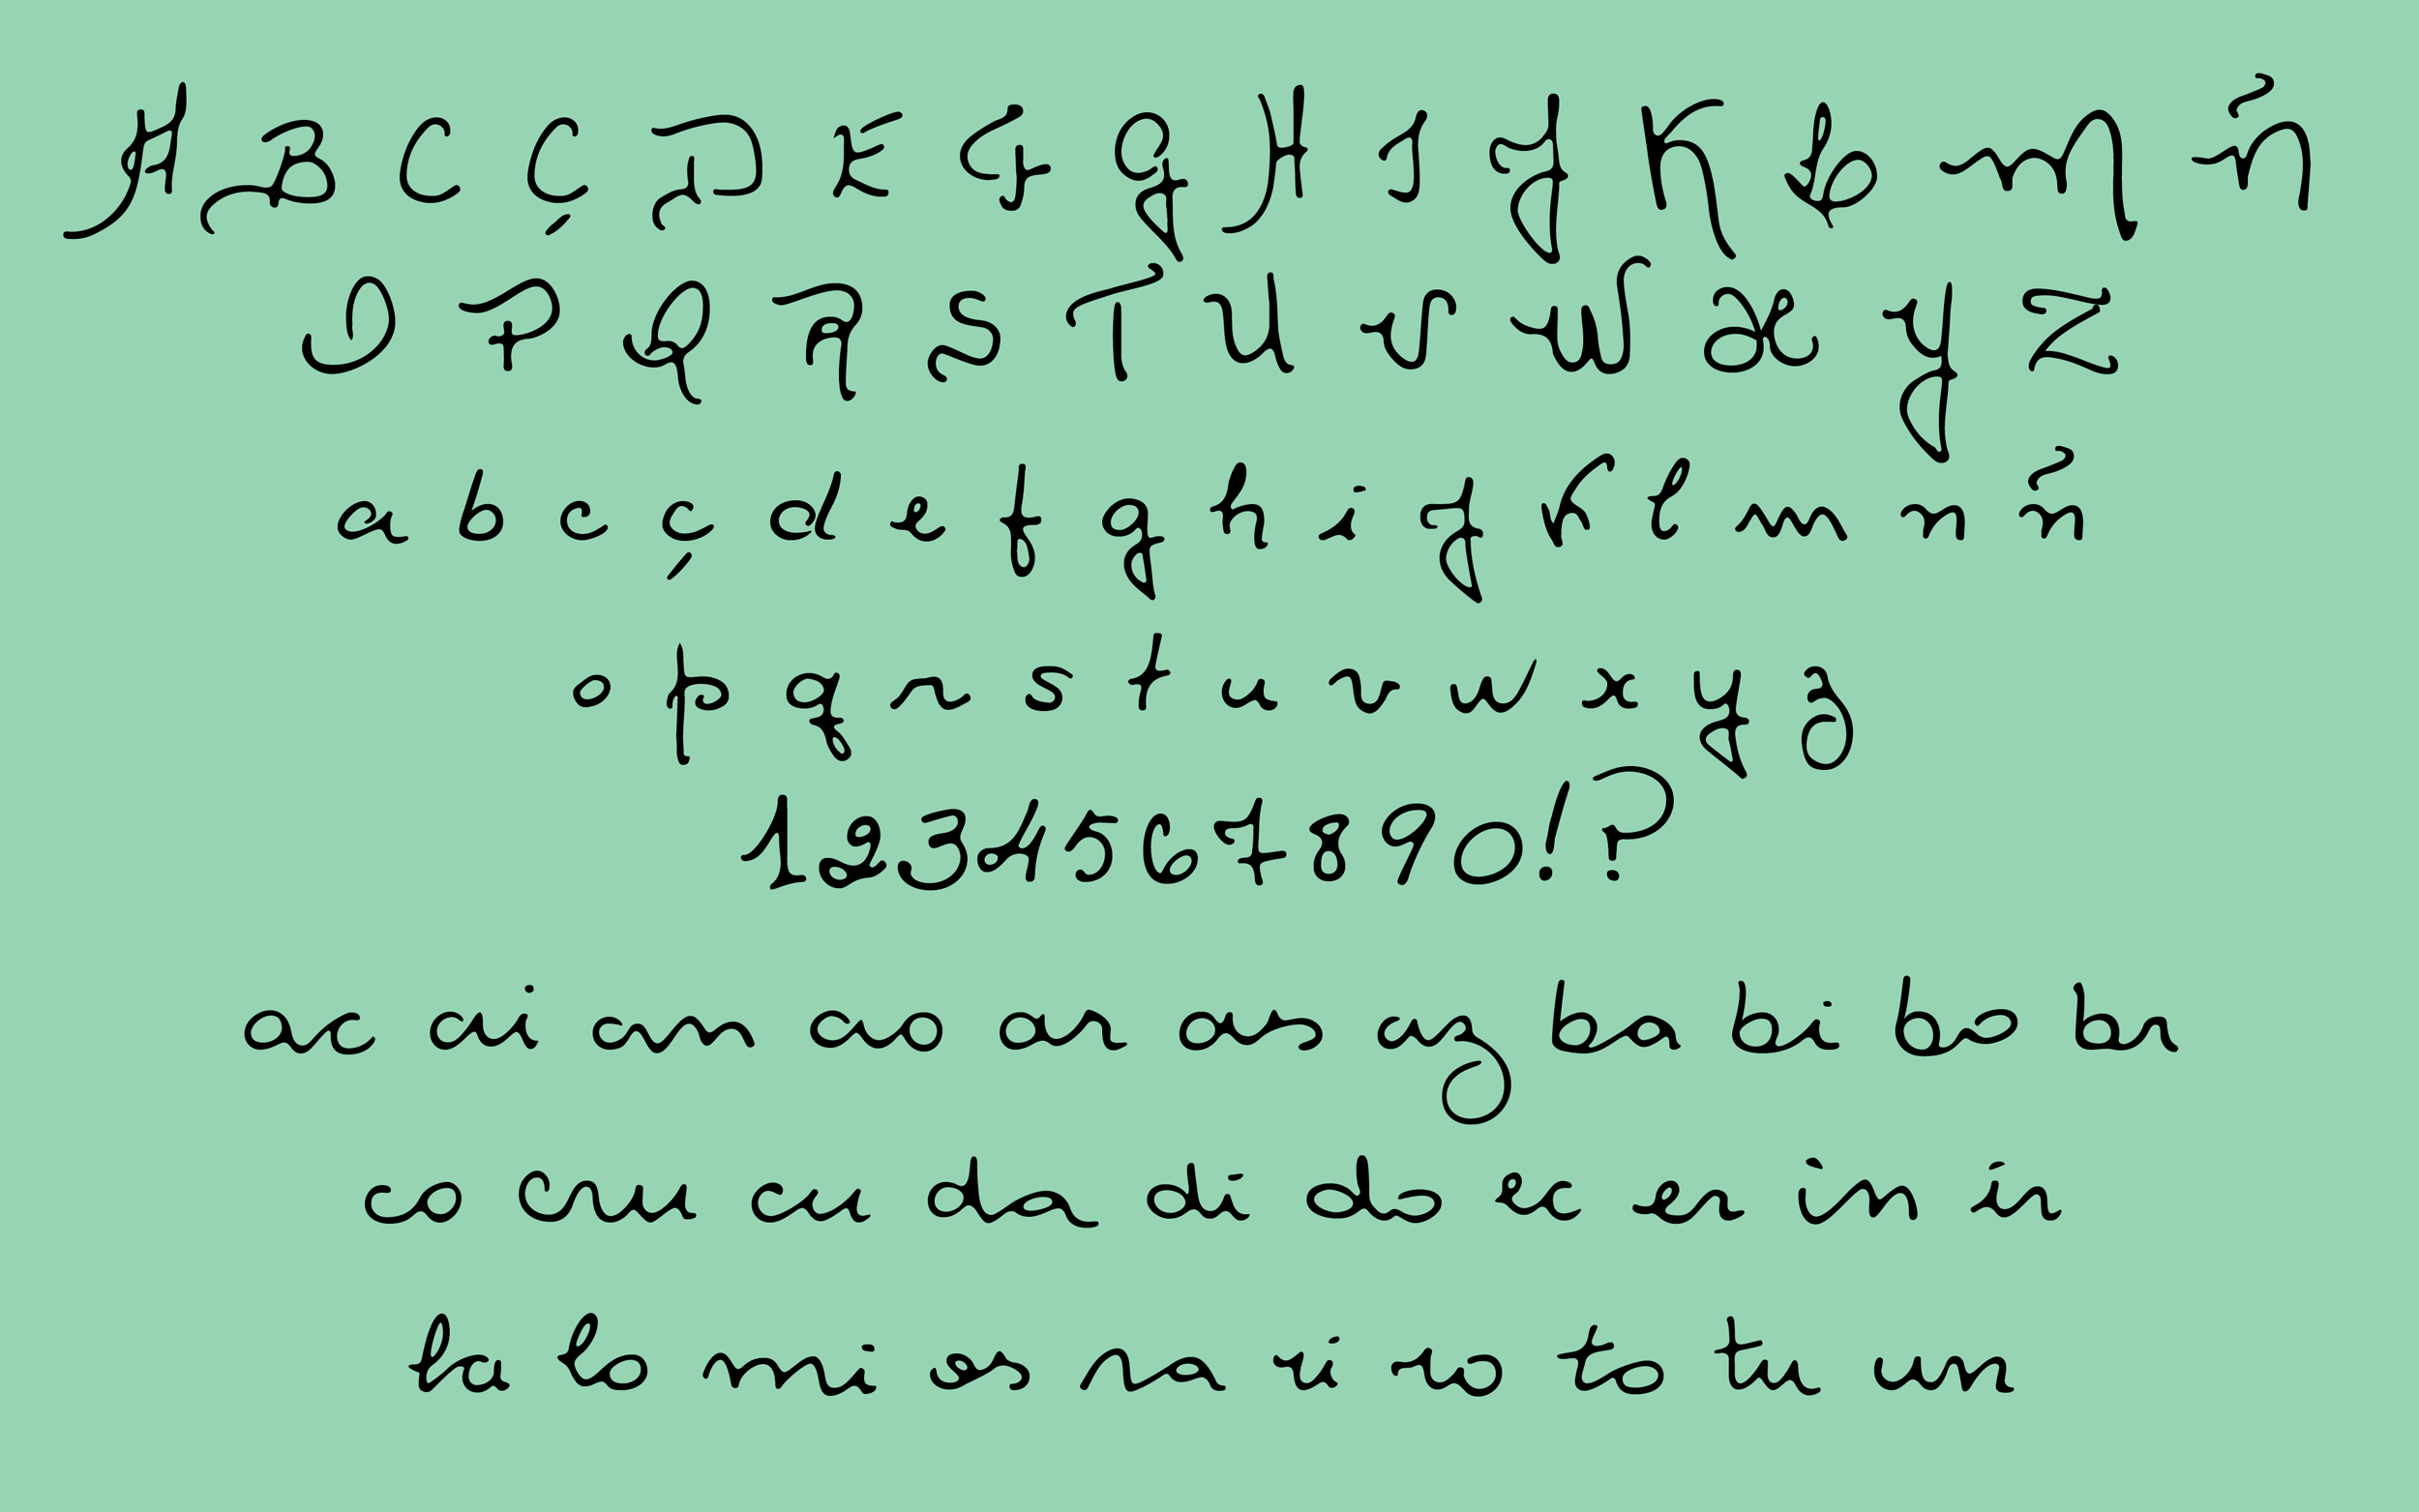 A B C Ç D E F G H I J K L M Ñ
O P Q R S T U V W X Y Z
a b c ç d e f g h i j k l m n ñ
o p q r s t u v w x y z
1234567890!?
ac ai am ao ar as az ba bi bo br
co cru cu da di do ec er in ir
la lo mi os ra ri ro to tu un